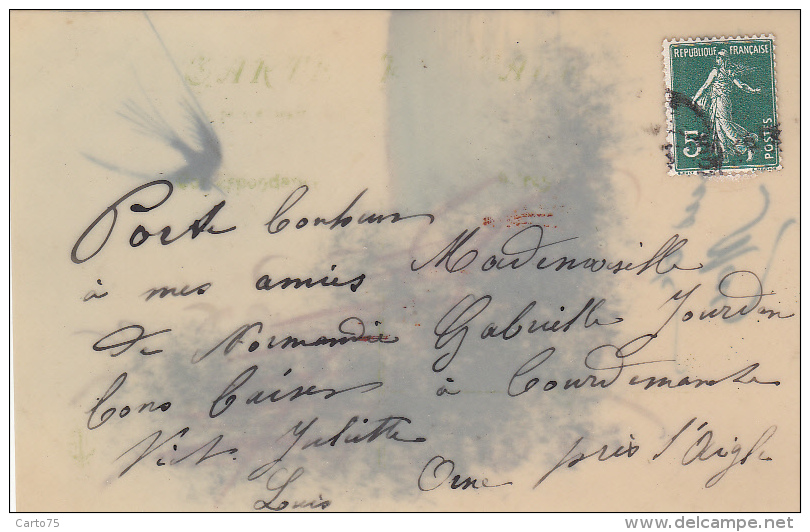 REPUBLIQUE FRANÇAISE
5c
POSTES
Porte bonheur
à mes amies
de Normandie
bons baisers
Juliette
Louis
Mademoiselle
Gabrielle Jourdan
à Courdemanche
Orne près l'Aigle
Carto75
http://www.delcampe.net